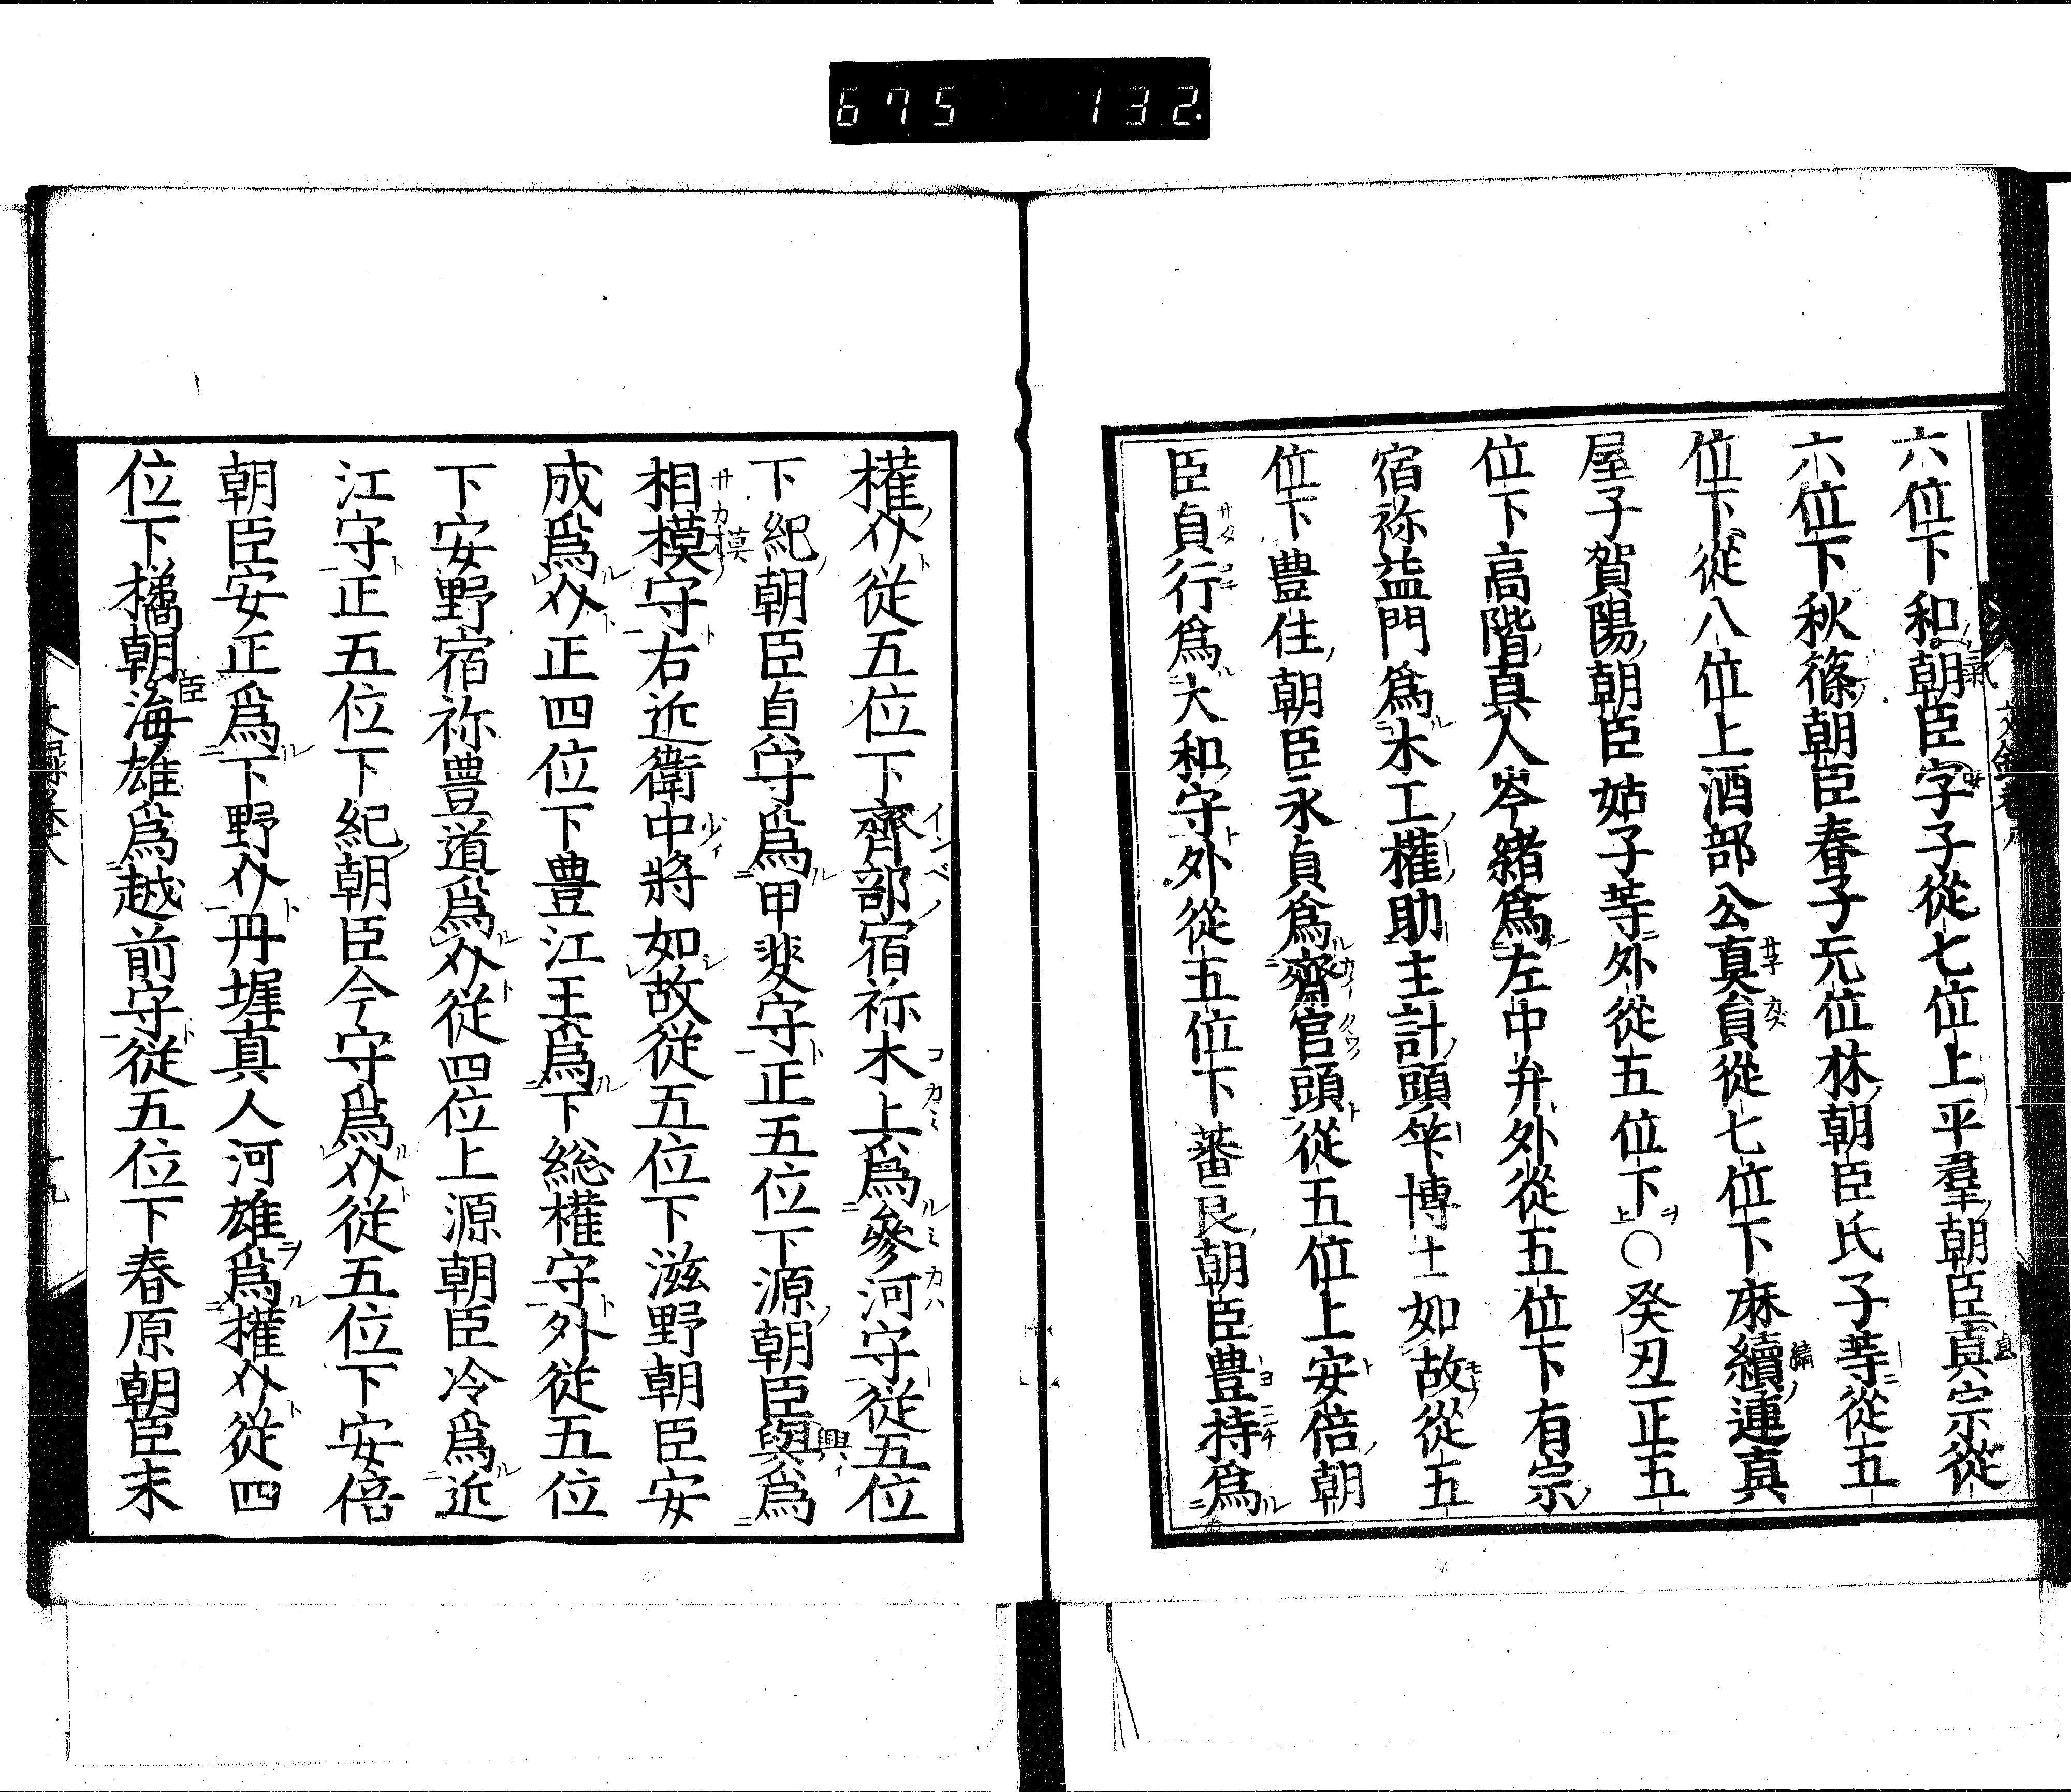 675 132.
六位下和朝臣字子從七位上平羣朝臣真宗從
六位下秋篠朝臣春子无位林朝臣氏子等從五
位下從八位上酒部公真貟從七位下麻續連真
屋子賀陽朝臣姑子等外從五位下〇癸丑正五
位下高階真人岑緒爲左中弁外從五位下有宗
宿祢益門爲木工權助主計頭竿博士如故從五
位下豊住朝臣永貞爲齋官頭從五位上安倍朝
臣貞行爲大和守外從五位下蕃良朝臣豊持爲
權介従五位下齊部宿祢木上爲參河守従五位
下紀朝臣貞守爲甲斐守正五位下源朝臣與爲
相模守右近衛中將如故従五位下滋野朝臣安
成爲介正四位下豊江王爲下総權守外従五位
下安野宿祢豊道爲介従四位上源朝臣冷爲近
江守正五位下紀朝臣今守爲介従五位下安倍
朝臣安正爲下野介丹墀真人河雄爲權介従四
位下橘朝臣海雄爲越前守従五位下春原朝臣末